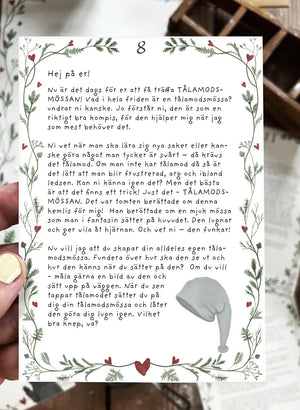 8
Hej på er!
Nu är det dags för er att få träffa TÅLAMODS-
MÖSSAN! Vad i hela friden är en tålamodsmössa?
undrar ni kanske. Jo förstår ni, den är som en
riktigt bra kompis, för den hjälper mig när jag
som mest behöver det.
Ni vet när man ska lära sig nya saker eller kan-
ske göra något man tycker är svårt – då krävs
det tålamod. Om man inte har tålamod då så är
det lätt att man blir frustrerad, arg och ibland
ledsen. Kan ni känna igen det? Men det bästa
är att det finns ett trick! Just det - TÅLAMODS-
MÖSSAN. Det var tomten berättade om denna
hemlis för mig! Han berättade om en mjuk mössa
som man i fantasin sätter på huvudet. Den lugnar
och ger vila åt hjärnan. Och vet ni – den funkar!
Nu vill jag att du skapar din alldeles egen tåla-
modsmössa. Fundera över hur ska den se ut och
hur den känns när du sätter på den? Om du vill
- måla gärna en bild av den och
sätt upp på väggen. När du sen
tappar tålamodet sätter du på
dig din tålamodsmössa och låter
den göra dig lugn igen. Vilket
bra knep, va?